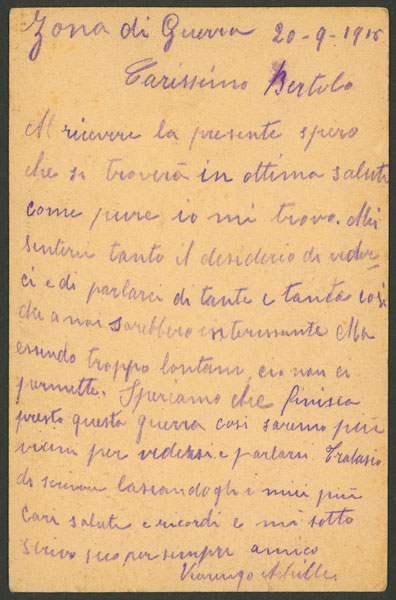 Zona di Guerra 20-9-1916
Carissimo Bertolo
Al ricevere la presente spero
che si troverà in ottima salute
come pure io mi trovo. Mi
sentirei tanto il desiderio di veder-
ci e di parlarci di tante e tante cosi
che a noi sarebbero interessante Ma
essendo troppo lontani, ciò non ci
permette. Speriamo che finisca
presto questa guerra così saremo più
vicini per vedersi e parlarsi. Tralascio
di scrivere lasciandoghi i miei più
cari saluti e ricordi e mi sotto
scrivo suo per sempre amico
Achille